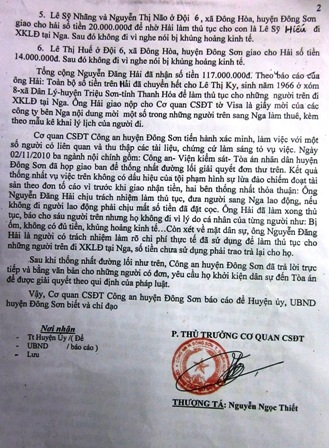 2
5. Lê Sỹ Nhăng và Nguyễn Thị Não ở Đội 6, xã Đông Hòa, huyện Đông Sơn
giao cho hải số tiền 20.000.000đ để nhờ Hải làm thủ tục cho con là Lê Sỹ Hiếu đi
XKLĐ tại Nga. Sau đó không đi vì nghe nói bị khủng hoảng kinh tế.
6. Lê Thị Huế ở Đội 6, xã Đông Hòa, huyện Đông Sơn giao cho Hải số tiền
14.000.000đ. Sau đó không đi vì nghe nói bị khủng hoảng kinh tế.
Tổng cộng Nguyễn Đăng Hải đã nhận số tiền 117.000.000đ. Theo báo cáo của
ông Hải: Toàn bộ số tiền trên Hải đã chuyển hết cho Lê Thị Kỳ, sinh năm 1966 ở xóm
8-xã Dân Lý-huyện Triệu Sơn-tỉnh Thanh Hóa để làm thủ tục cho những người trên đi
XKLĐ tại Nga. Ông Hải giao nộp cho Cơ quan CSĐT tờ Visa là giấy mời của các
công ty bên Nga nội dung mời một số trong những người trên sang Nga làm thuê, kèm
theo mẫu kê khai lý lịch của người đi.
Cơ quan CSĐT Công an huyện Đông Sơn tiến hành xác minh, làm việc với một
số người có liên quan và thu thập các tài liệu, chứng cứ làm sáng tỏ vụ việc. Ngày
02/11/2010 ba ngành nội chính gồm: Công an- Viện kiểm sát- Tòa án nhân dân huyện
Đông Sơn đã họp giao ban để thống nhất đường lối giải quyết đơn thư trên. Kết quả
thống nhất vụ việc trên không có dấu hiệu của tội phạm hình sự lừa đảo chiếm đoạt tài
sản theo đơn tố cáo vì trước khi giao nhận tiền, hai bên thống nhất thỏa thuận: Ông
Nguyễn Đăng Hải chịu trách nhiệm làm thủ tục, đưa người sang Nga lao động, nếu
không đi người lao động phải chịu mất số tiền đã đặt cọc. Ông Hải đã làm xong thủ
tục, báo cho sáu người trên nhưng họ không đi vì lý do cá nhân của từng người như: Bị
ốm, không có đủ tiền, khủng hoảng kinh tế…Còn xét về mặt dân sự, ông Nguyễn Đăng
Hải là người có trách nhiệm làm rõ chi phí thực tế đã sử dụng để làm thủ tục cho
những người trên đi XKLĐ tại Nga, số tiền chưa sử dụng phải trao trả lại cho họ.
Sau khi thống nhất đường lối như trên, Công an huyện Đông Sơn đã trả lời trực
tiếp và bằng văn bản cho những người có đơn, yêu cầu họ khởi kiện dân sự đến Tòa án
để được giải quyết theo qui định của pháp luật.
Vậy, Cơ quan CSĐT Công an huyện Đông Sơn báo cáo để Huyện ủy, UBND
huyện Đông Sơn biết và chỉ đạo
Nơi nhận
- Tt Huyện Ủy / Để
- UBND / báo cáo )
- Lưu
P. THỦ TRƯỞNG CƠ QUAN CSĐT
THƯỢNG TÁ: Nguyễn Ngọc Thiết